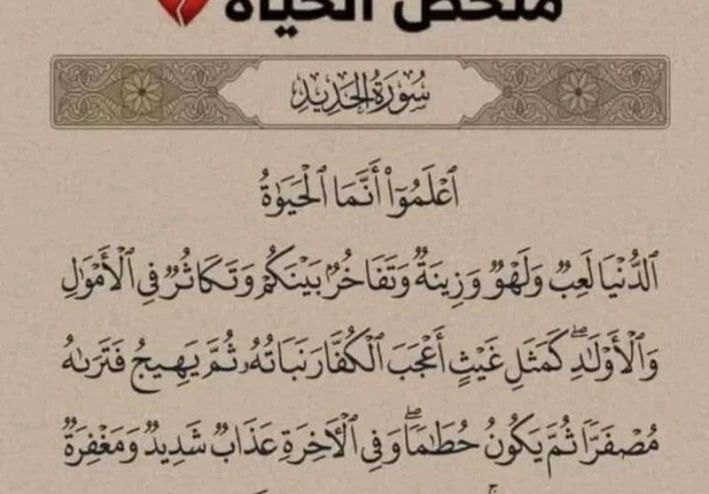 ملخص الحياة
سُورَةُ الحَدِيدِ
ٱعْلَمُوٓا۟ أَنَّمَا ٱلْحَيَوٰةُ
ٱلدُّنْيَا لَعِبٌ وَلَهْوٌ وَزِينَةٌ وَتَفَاخُرٌۢ بَيْنَكُمْ وَتَكَاثُرٌ فِى ٱلْأَمْوَٰلِ
وَٱلْأَوْلَـٰدِ ۖ كَمَثَلِ غَيْثٍ أَعْجَبَ ٱلْكُفَّارَ نَبَاتُهُۥ ثُمَّ يَهِيجُ فَتَرَىٰهُ
مُصْفَرًّا ثُمَّ يَكُونُ حُطَـٰمًا ۖ وَفِى ٱلْـَٔاخِرَةِ عَذَابٌ شَدِيدٌ وَمَغْفِرَةٌ